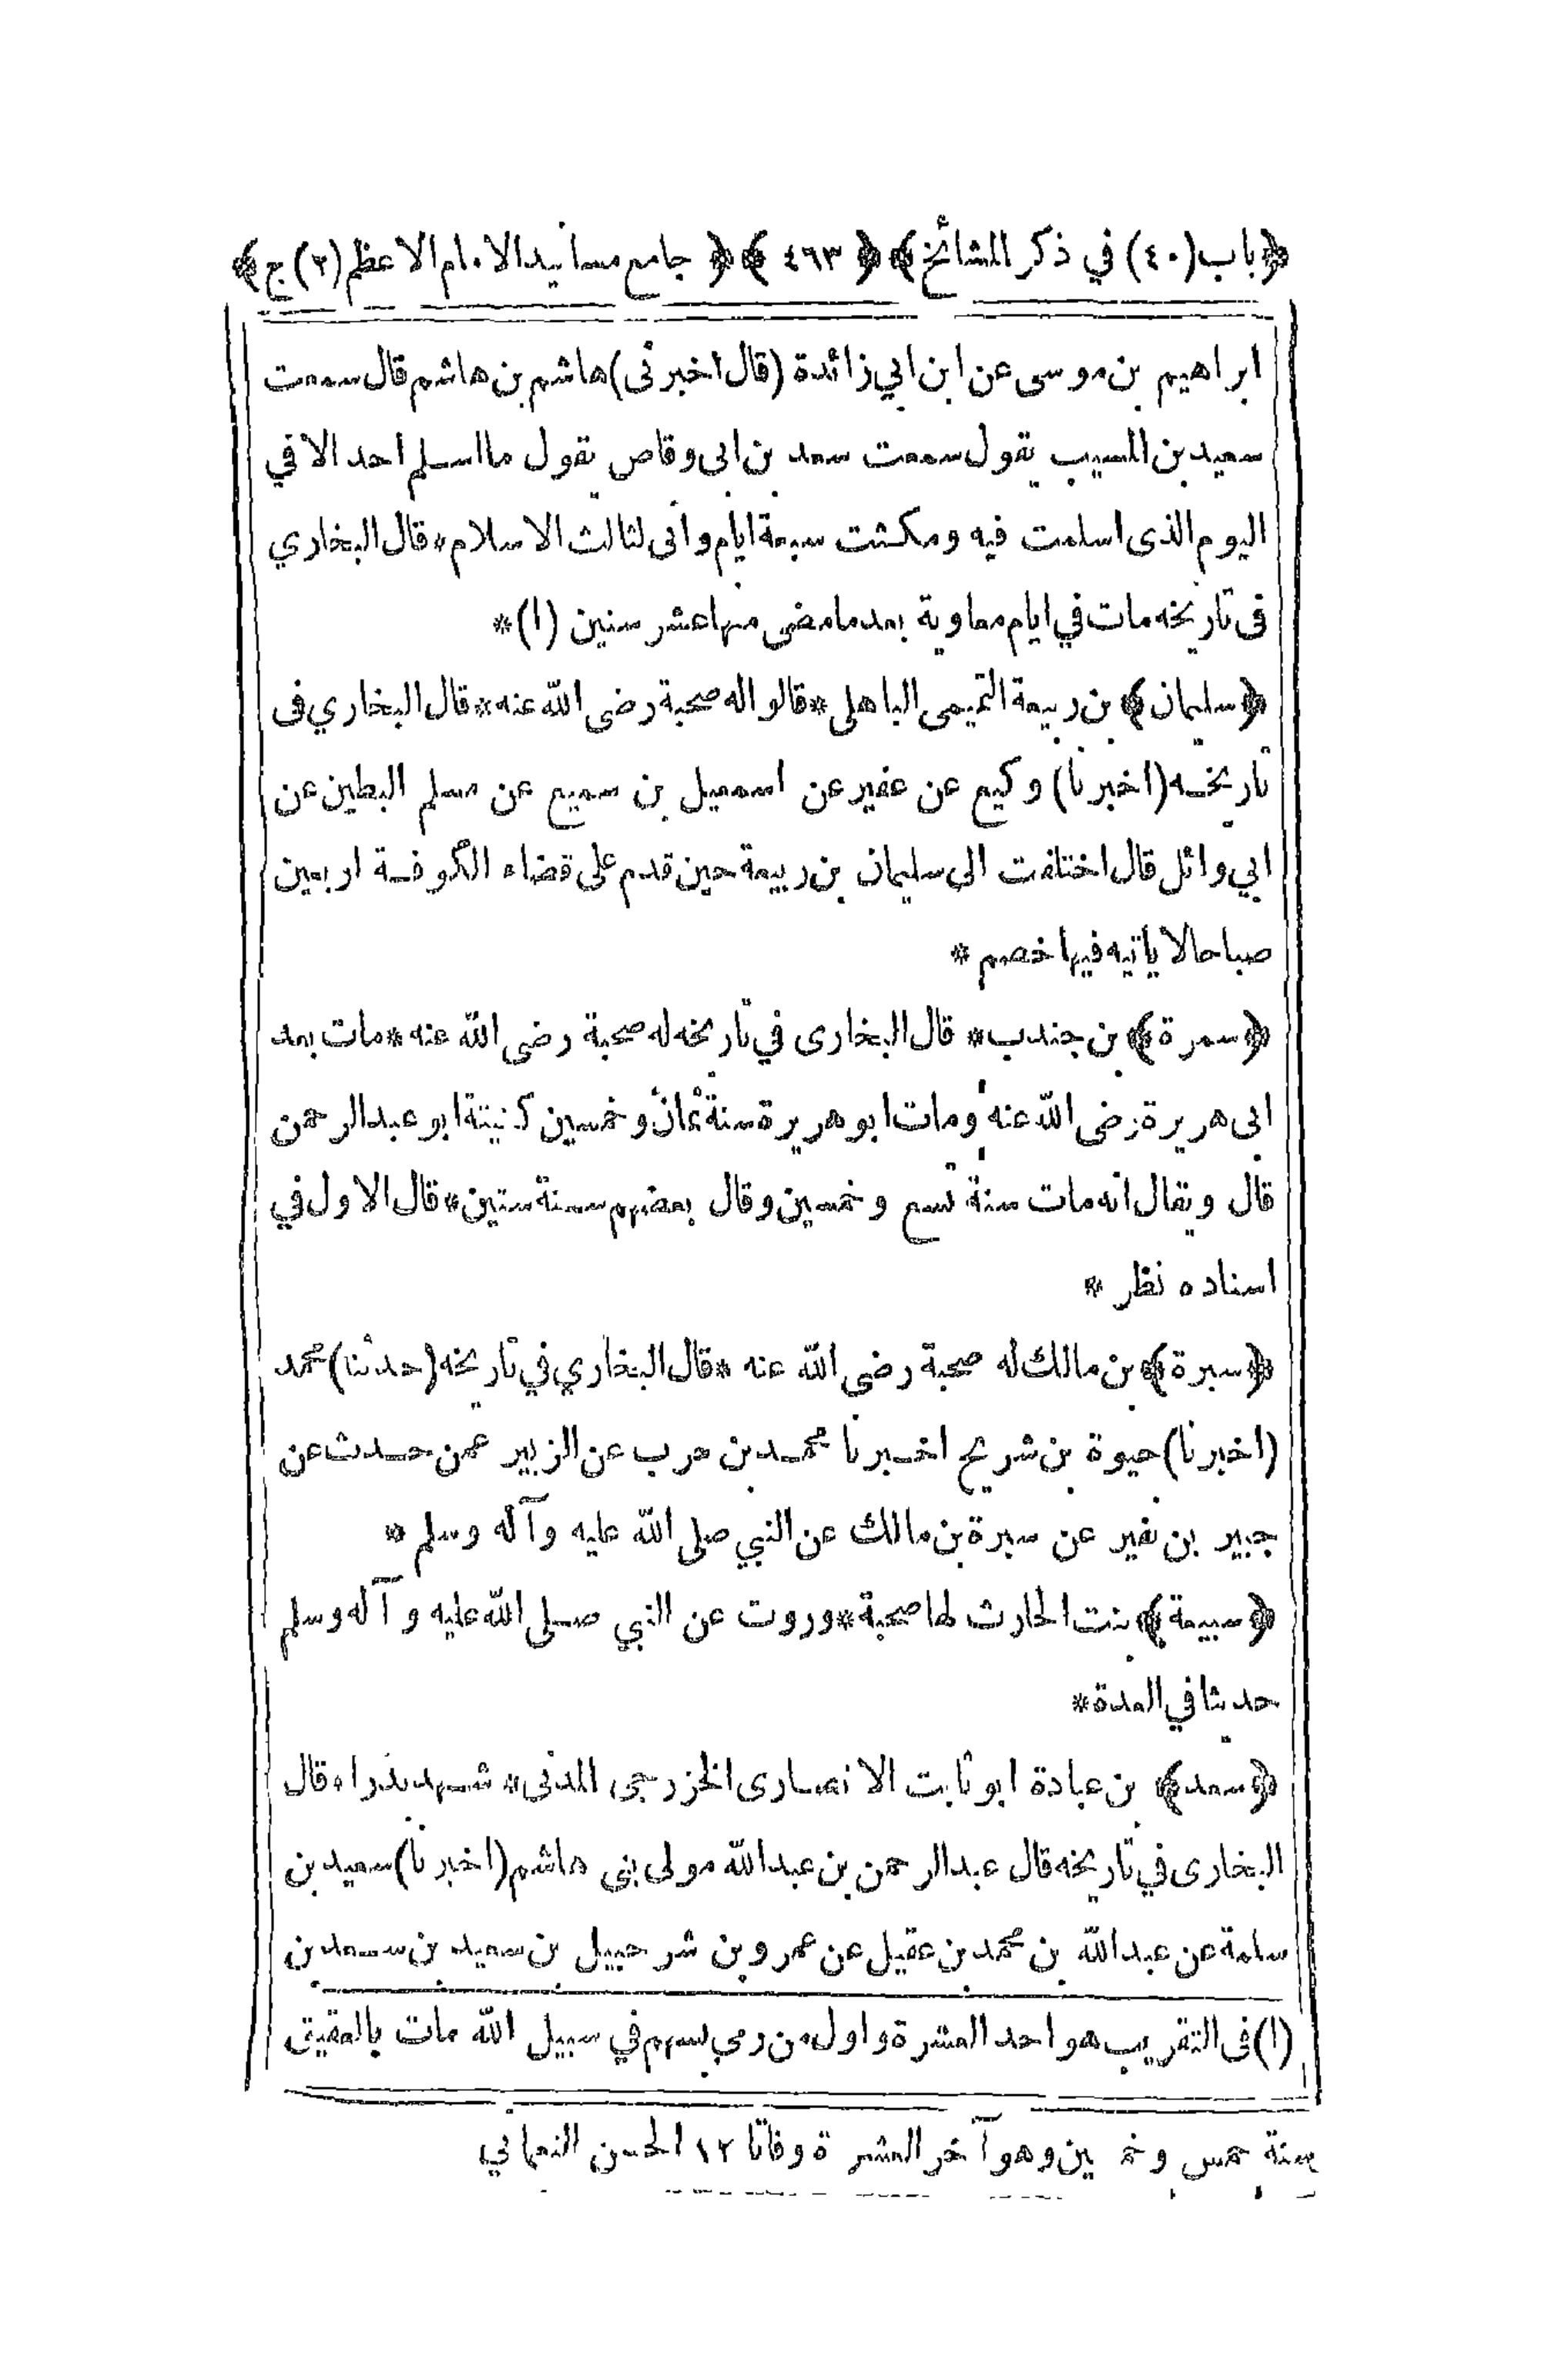 ﴿باب (٤٠) في ذكر المشائخ﴾ ﴿٤٦٣﴾ ﴿جامع مسانيد الامام الاعظم (٢) ج﴾
ابراهيم بن موسى عن ابن ابي زائدة (قال اخبرنى) هاشم بن هاشم قال سمعت
سعيد بن المسيب يقول سمعت سعد بن ابى وقاص يقول ما اسلم احد الا في
اليوم الذى اسلمت فيه ومكثت سبعة ايام وانى لثالث الاسلام * قال البخاري
فى تاريخه مات في ايام معاوية بعد ما مضى منها عشر سنين (١) *
﴿سليمان﴾ بن ربيعة التميمى الباهلى * قالوا له صحبة رضى الله عنه * قال البخاري فى
تاريخه (اخبرنا) وكيع عن عفير عن اسمعيل بن سميع عن مسلم البطين عن
ابي وائل قال اختلفت الى سليمان بن ربيعة حين قدم على قضاء الكوفة اربعين
صباحا لا ياتيه فيها خصم *
﴿سمرة﴾ بن جندب * قال البخارى في تاريخه له صحبة رضى الله عنه * مات بعد
ابى هريرة رضى الله عنه ومات ابو هريرة سنة ثمان وخمسين كنيتة ابو عبد الرحمن
قال ويقال انه مات سنة تسع وخمسين وقال بعضهم سنة ستين * قال الاول في
اسناده نظر *
﴿سبرة﴾ بن مالك له صحبة رضى الله عنه * قال البخاري في تاريخه (حدثنا) محمد
(اخبرنا) حيوة بن شريح اخبرنا محمد بن حرب عن الزبير عمن حدث عن
جبير بن نفير عن سبرة بن مالك عن النبي صلى الله عليه وآله وسلم *
﴿سبيعة﴾ بنت الحارث لها صحبة * وروت عن النبي صلى الله عليه وآله وسلم
حديثا في العدة *
﴿سعد﴾ بن عبادة ابو ثابت الانصارى الخزرجى المدنى * شهد بدرا * قال
البخارى في تاريخه قال عبد الرحمن بن عبد الله مولى بنى هاشم (اخبرنا) سعيد بن
سلمة عن عبد الله بن محمد بن عقيل عن عمرو بن شرحبيل بن سعيد بن سعد بن
(١) فى التقريب هو احد العشرة واول من رمى بسهم في سبيل الله مات بالعقيق
سنة خمس وخمسين وهو آخر العشرة وفاتا ١٢ الحسن النعماني